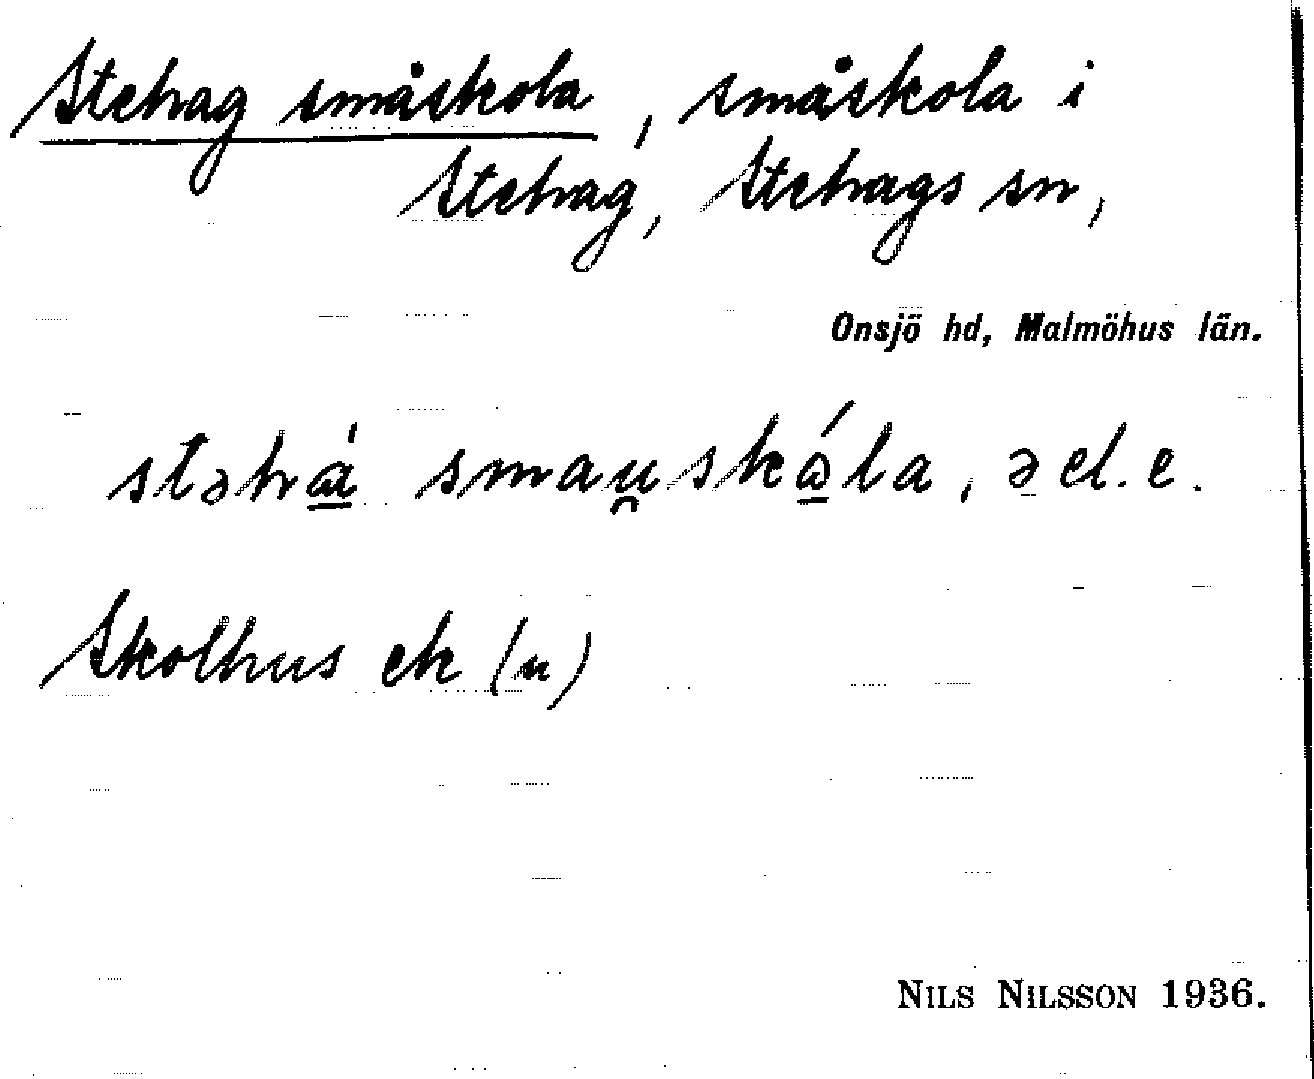 Stehag småskola, småskola i
Stehag, Stehags sn,
Onsjö hd, Malmöhus län.
stəha̱̍ smau̯skǻ̱la, ə el. e.
Skolhus ek (u)
NILS NILSSON 1936.